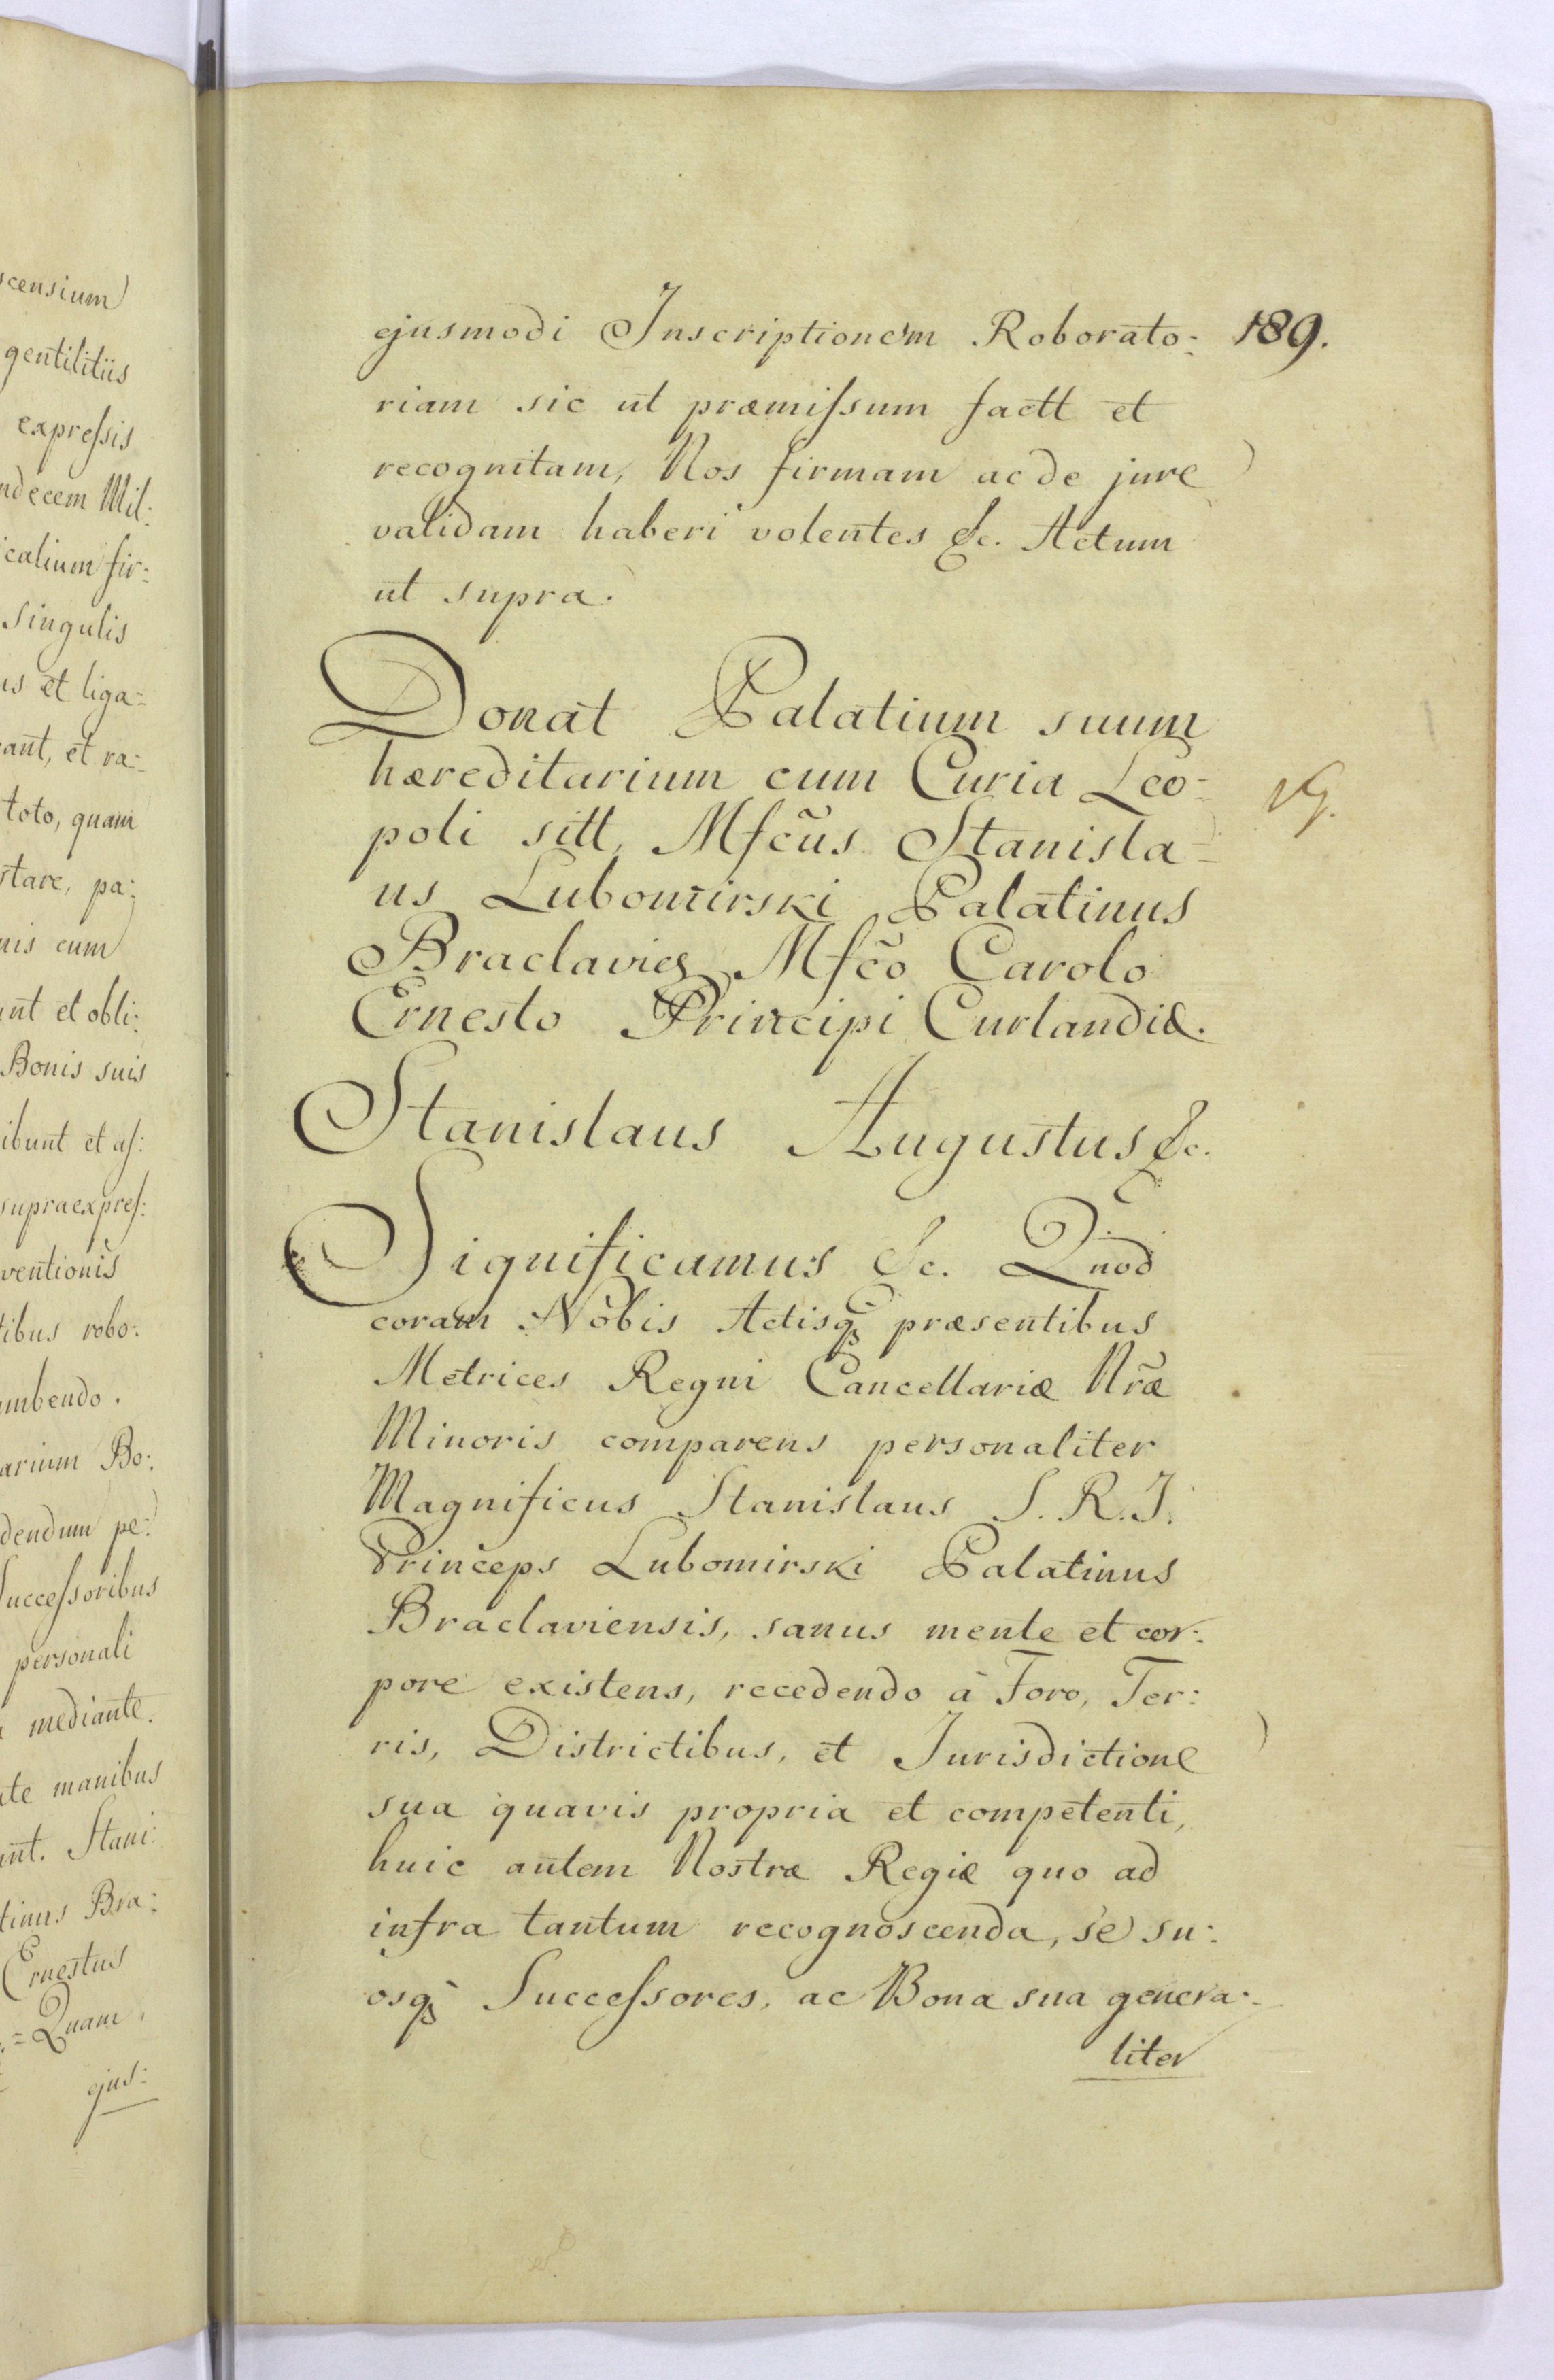 scensium
gentilitiis
expressis
ndecem Mil:
icalium fir:
Singulis
us et liga=
ant, et ra=
toto, quam
stare, pa:
nis cum
unt et obli:
Bonis suis
ibunt et as:
supraexpres:
ventionis
tibus robo:
umbendo.
arium Bo:
dendum pe:
Successoribus
personali
mediante.
ate manibus
unt. Stani:
tinus Bra:
Ernestus
=Quam
ejus:
ejusmodi Inscriptionem Roborato: 189.
riam sic ut præmissum factt et
recognitam, Nos firmam ac de jure
validam haberi volentes &c. Actum
ut supra.
Donat Palatium suum
hæreditarium cum Curia Leo=
poli sitt, Mfcũs Stanisla=
us Lubomirski Palatinus
Braclavien Mfcõ Carolo
Ernesto Principi Curlandiæ.
Stanislaus Augustus &c.
Significamus &c. Quod
coram Nobis Actisqꝫ præsentibus
Metrices Regni Cancellariæ Nræ̃
Minoris comparens personaliter
Magnificus Stanislaus S. R. I.
Princeps Lubomirski Palatinus
Braclaviensis, sanus mente et cor:
pore existens, recedendo à Foro, Ter:
ris, Districtibus, et Jurisdictione
sua quavis propria et competenti,
huic autem Nostræ Regiæ quo ad
infra tantum recognoscenda, se su:
osqꝫ Successores, ac Bona sua genera:
liter